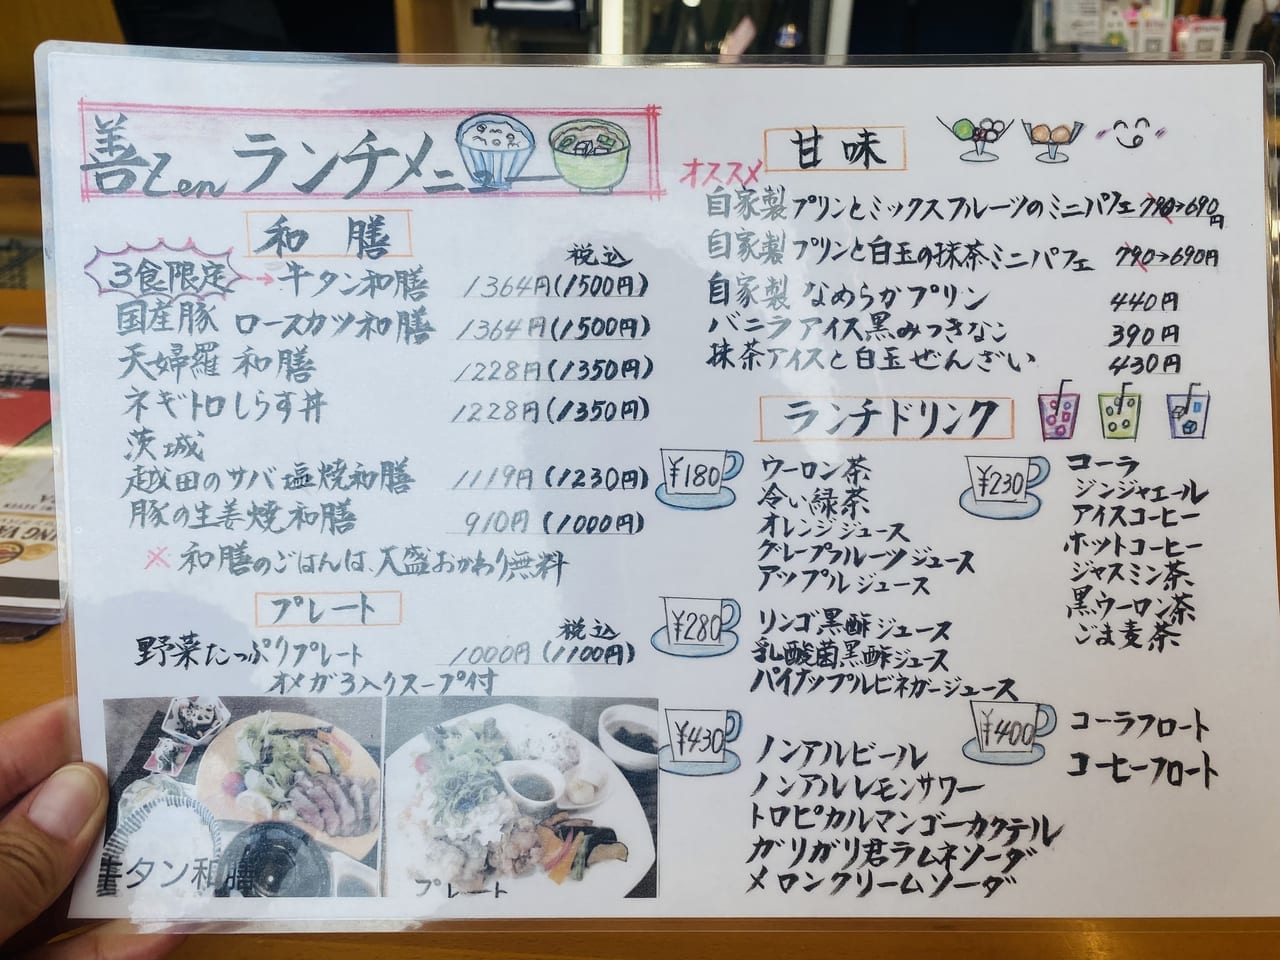 善Zen ランチメニュー
和膳
税込
3食限定→牛タン和膳 1364円(1500円)
国産豚 ロースカツ和膳 1364円(1500円)
天婦羅 和膳 1228円(1350円)
ネギトロしらす丼 1228円(1350円)
茨城
越田のサバ塩焼和膳 1119円(1230円)
豚の生姜焼和膳 910円(1000円)
※和膳のごはんは、大盛おかわり無料
プレート
税込
野菜たっぷりプレート 1000円(1100円)
オメガ3入りスープ付
牛タン和膳
プレート
甘味
オススメ
自家製プリンとミックスフルーツのミニパフェ 790→690円
自家製プリンと白玉の抹茶ミニパフェ 790→690円
自家製なめらかプリン 440円
バニラアイス黒みつきなこ 390円
抹茶アイスと白玉ぜんざい 430円
ランチドリンク
¥180
ウーロン茶
冷い緑茶
オレンジジュース
グレープフルーツジュース
アップルジュース
¥280
リンゴ黒酢ジュース
乳酸菌黒酢ジュース
パイナップルビネガージュース
¥430
ノンアルビール
ノンアルレモンサワー
トロピカルマンゴーカクテル
ガリガリ君ラムネソーダ
メロンクリームソーダ
¥230
コーラ
ジンジャエール
アイスコーヒー
ホットコーヒー
ジャスミン茶
黒ウーロン茶
ごま麦茶
¥400
コーラフロート
コーヒーフロート